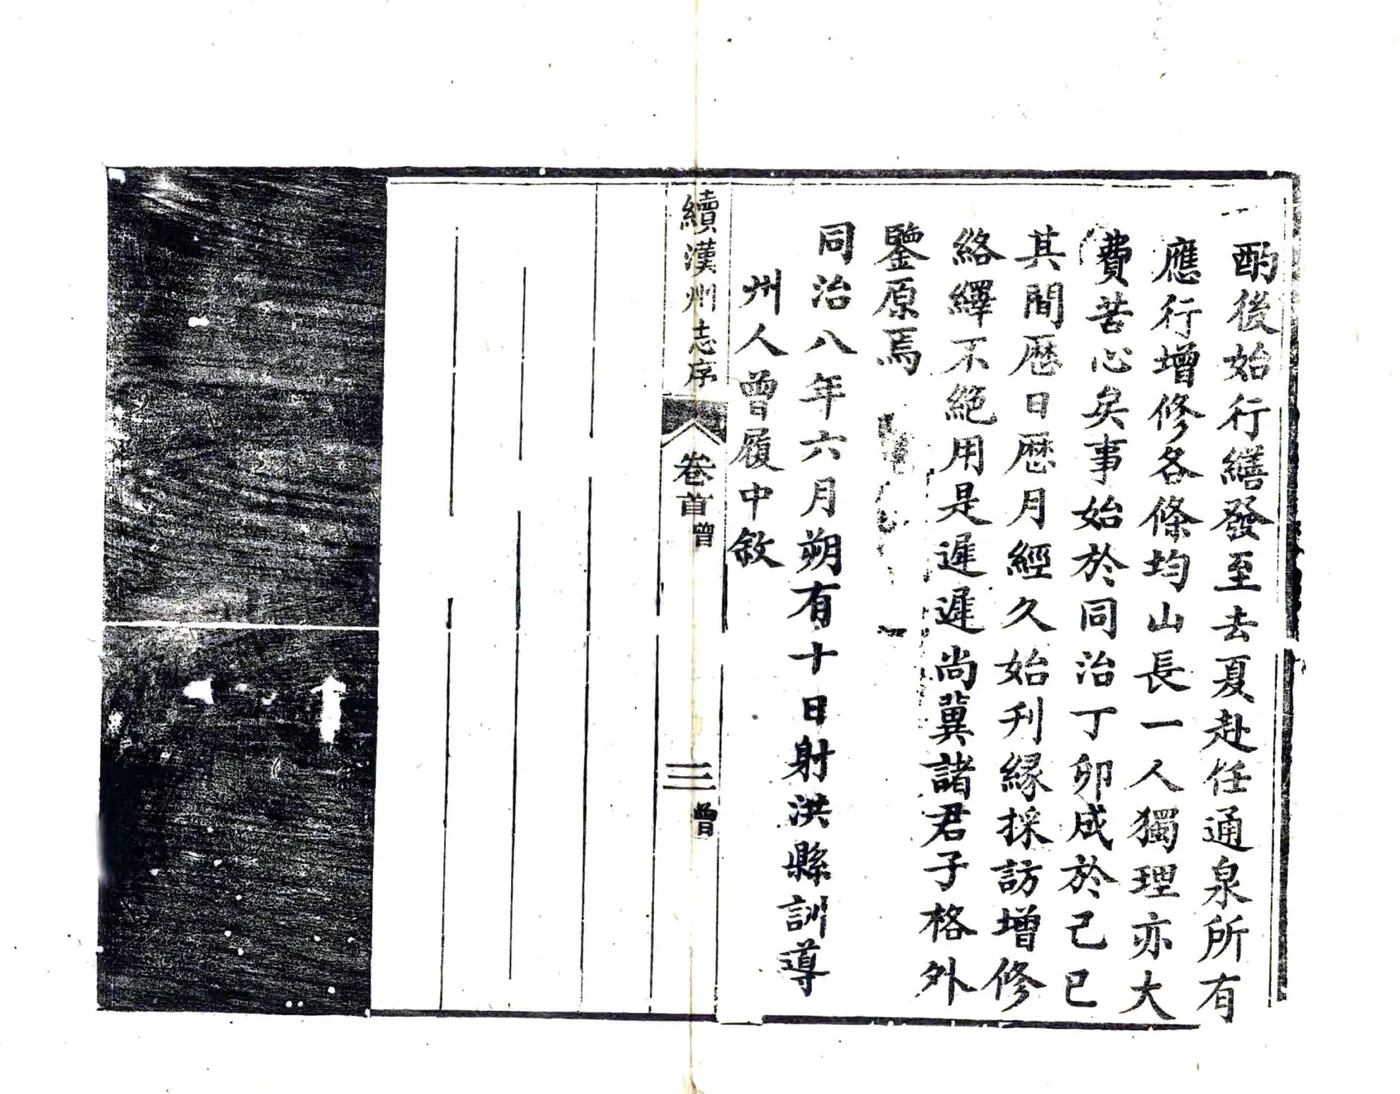 酌後始行繕發至去夏赴任通泉所有
應行增修各條均山長一人獨理亦大
費苦心矣事始於同治丁卯成於己巳
其間歷日歷月經久始刊緣採訪增修
絡繹不絕用是遲遲尚冀諸君子格外
鑒原焉
同治八年六月朔有十日射洪縣訓導
州人曾履中敘
續漢州志序
卷首曾
三
曾